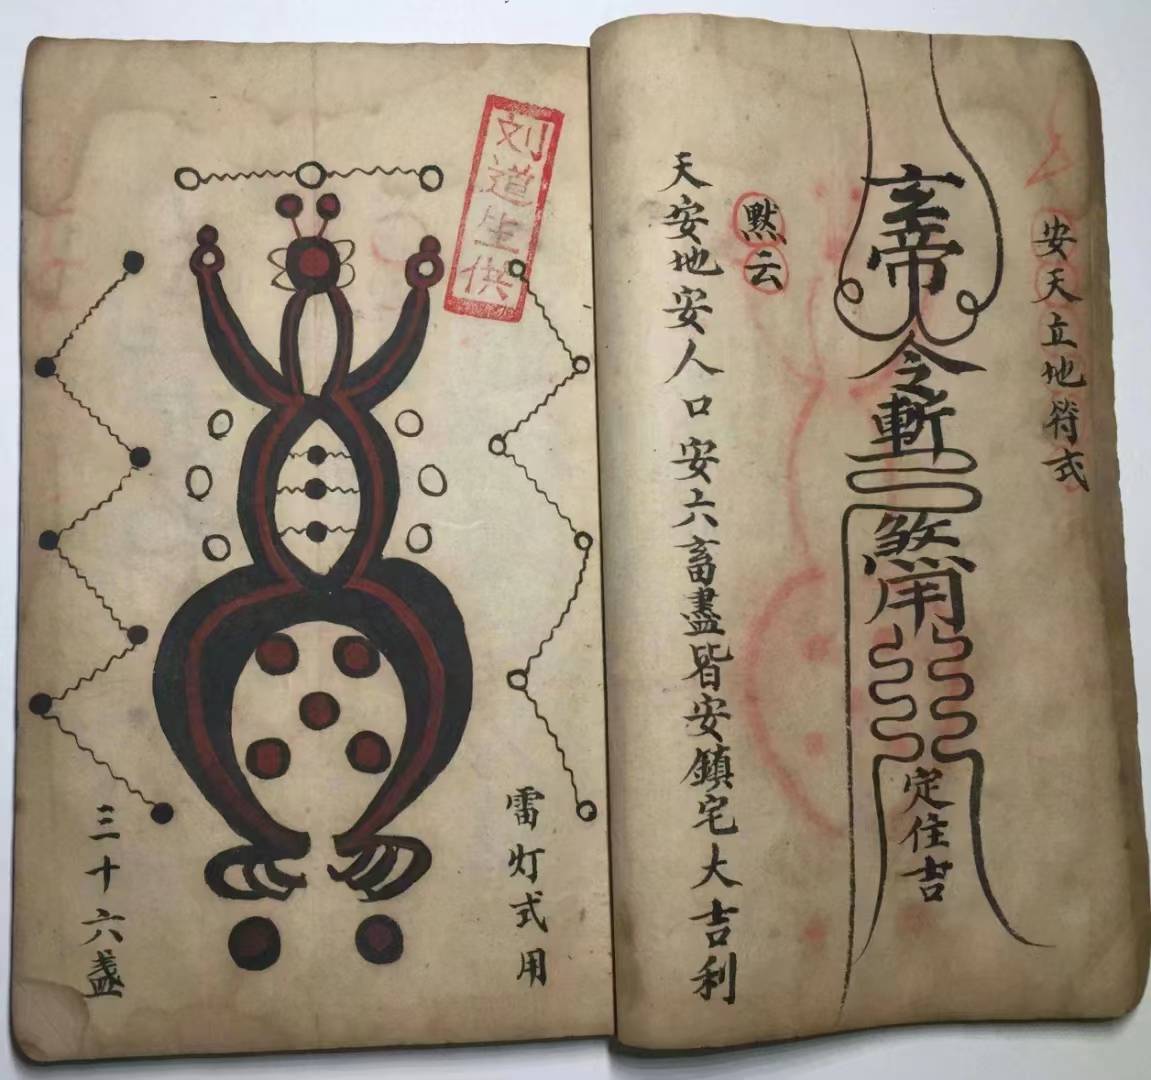 安天立地符式
玄帝令斬煞用定住吉
默云
天安地安人口安六畜盡皆安鎮宅大吉利
刘道生供
雷灯式用
三十六盏